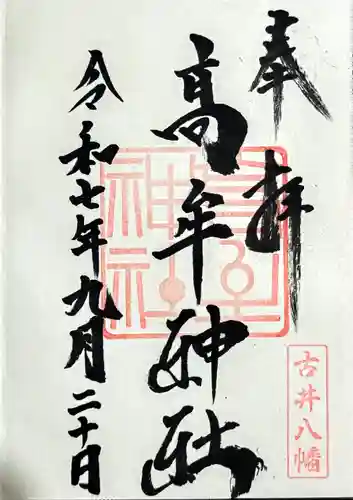 奉拝
高牟神社
令和七年九月二十日
古井八幡